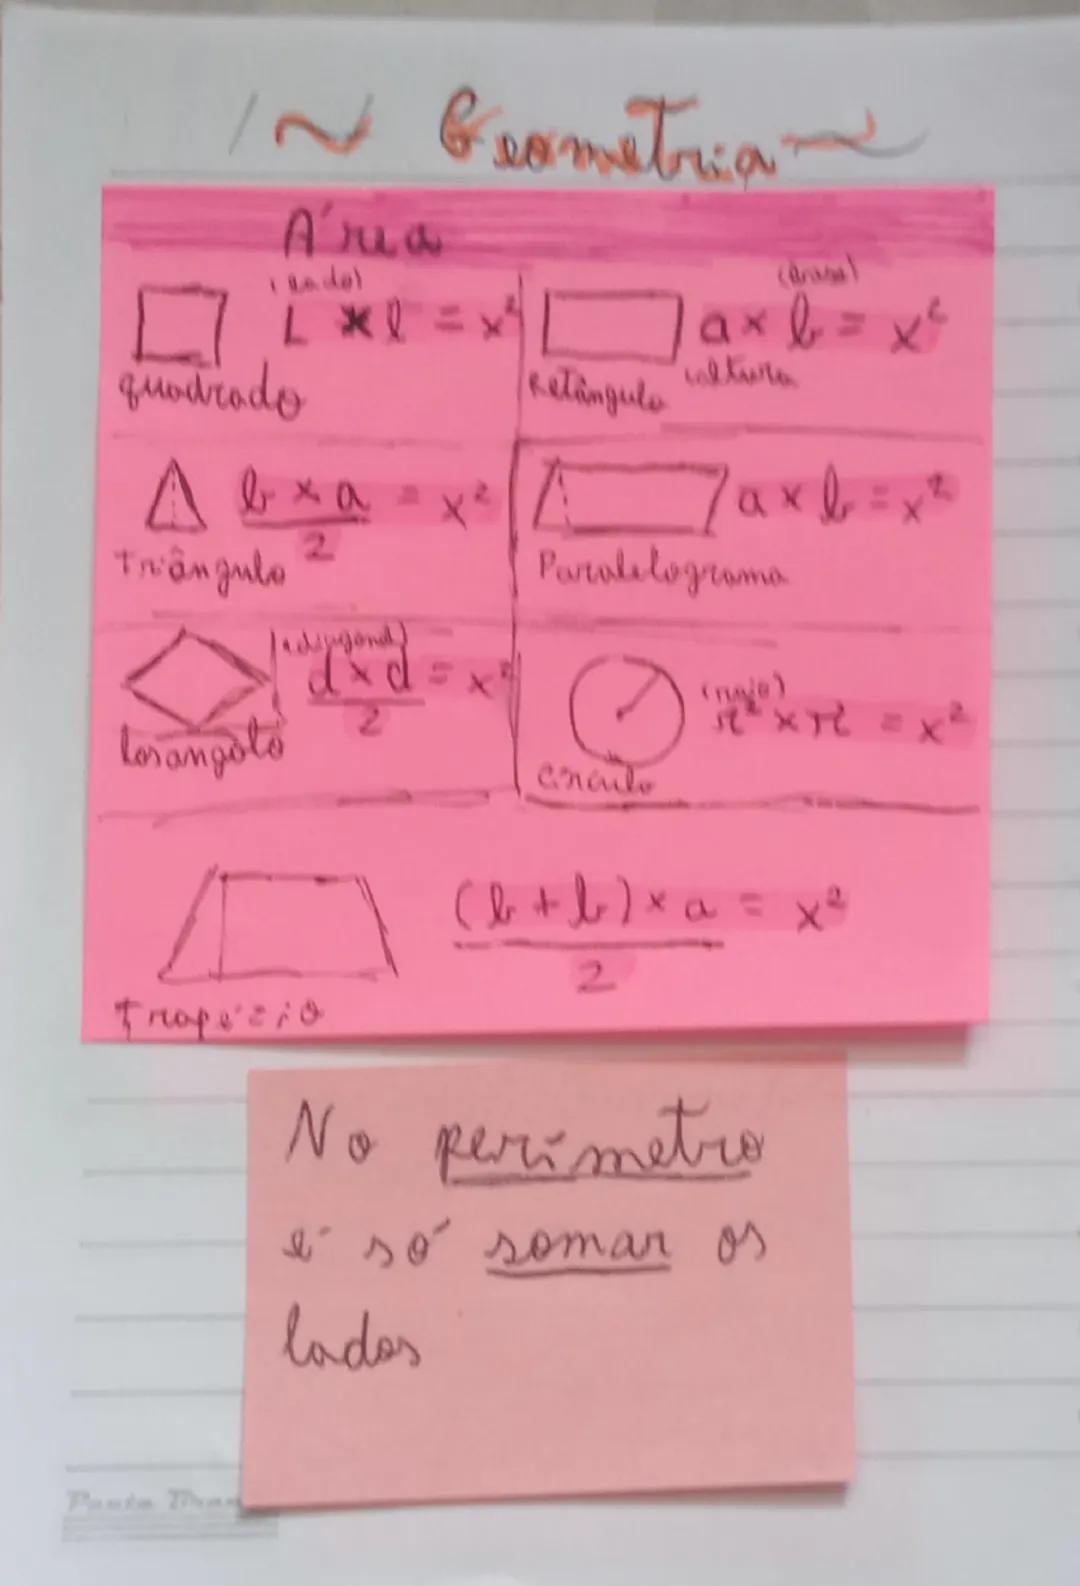 ~ Geometria ~
Área
(lado)
L x l = x²
quadrado
(base)
a x b = x²
altura
Retângulo
b x a = x²
2
Triângulo
a x b = x²
Paralelograma
(diagonal)
d x d = x²
2
losangolo
(raio)
r² x π = x²
círculo
(b + b) x a = x²
2
trapézio
No perímetro
é só somar os
lados